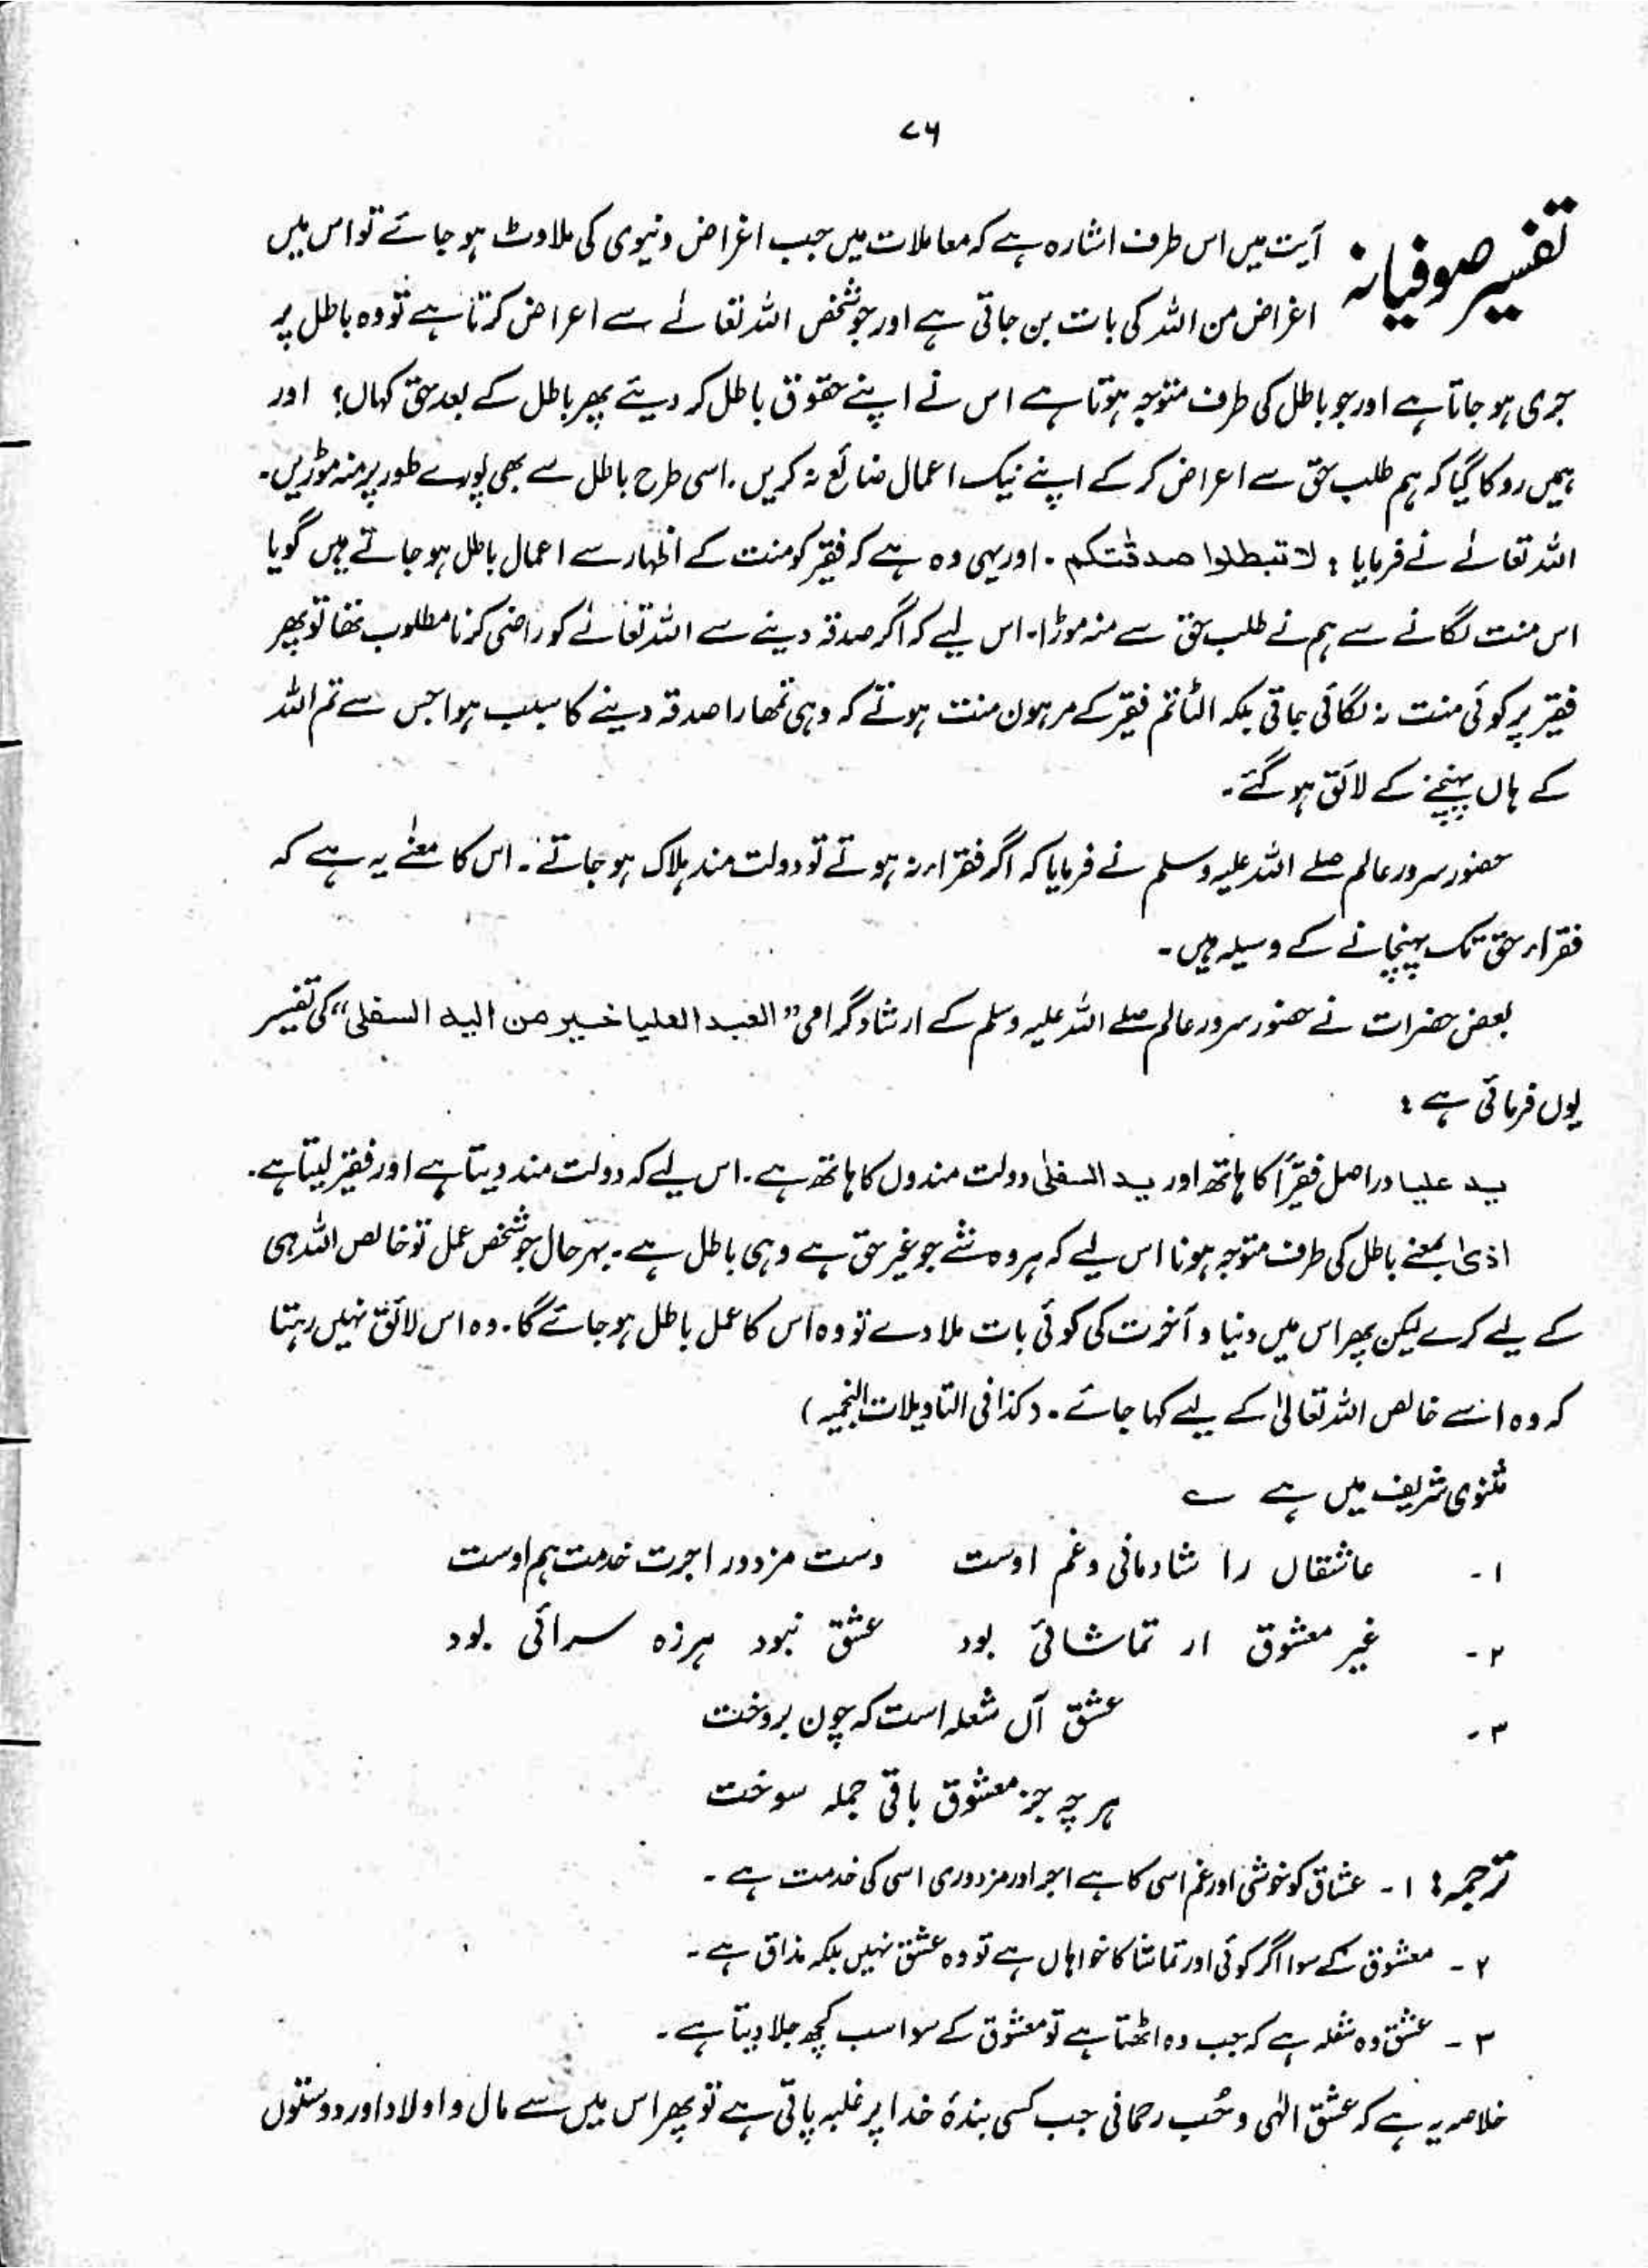 ۷۶
تفسیر صوفیانہ
آیت میں اس طرف اشارہ ہے کہ معاملات میں جب اغراض دنیوی کی ملاوٹ ہو جائے تو اس میں
اغراض من اللہ کی بات بن جاتی ہے اور جو شخص اللہ تعالےٰ سے اعراض کرتا ہے تو وہ باطل پر
جری ہو جاتا ہے اور جو باطل کی طرف متوجہ ہوتا ہے اس نے اپنے حقوق باطل کر دیئے پھر باطل کے بعد حق کہاں؟ اور
ہمیں روکا گیا کہ ہم طلب حق سے اعراض کر کے اپنے نیک اعمال ضائع نہ کریں۔ اسی طرح باطل سے بھی پورے طور پر منہ موڑیں۔
اللہ تعالےٰ نے فرمایا : لا تبطلوا صدقٰتکم ۔ اور یہی وہ ہے کہ فقیر کو منت کے اظہار سے اعمال باطل ہو جاتے ہیں گویا
اس منت لگانے سے ہم نے طلب حق سے منہ موڑا۔ اس لیے کہ اگر صدقہ دینے سے اللہ تعالےٰ کو راضی کرنا مطلوب تھا تو پھر
فقیر پر کوئی منت نہ لگائی جاتی بلکہ الٹا تم فقیر کے مرہون منت ہوتے کہ وہی تمھارا صدقہ دینے کا سبب ہوا جس سے تم اللہ
کے ہاں پہنچنے کے لائق ہو گئے۔
حضور سرور عالم صلے اللہ علیہ وسلم نے فرمایا کہ اگر فقراء نہ ہوتے تو دولت مند ہلاک ہو جاتے۔ اس کا معنےٰ یہ ہے کہ
فقراء حق تک پہنچانے کے وسیلہ ہیں۔
بعض حضرات نے حضور سرور عالم صلے اللہ علیہ وسلم کے ارشاد گرامی "العید العلیا خیر من الید السفلی" کی تفسیر
یوں فرمائی ہے :
ید علیا دراصل فقیراً کا ہاتھ اور ید السفلیٰ دولت مندوں کا ہاتھ ہے۔ اس لیے کہ دولت مند دیتا ہے اور فقیر لیتا ہے۔
اذیٰ بمعنے باطل کی طرف متوجہ ہونا اس لیے کہ ہر وہ شے جو غیر حق ہے وہی باطل ہے۔ بہرحال جو شخص عمل تو خالص اللہ ہی
کے لیے کرے لیکن پھر اس میں دنیا و آخرت کی کوئی بات ملا دے تو وہ اس کا عمل باطل ہو جائے گا۔ وہ اس لائق نہیں رہتا
کہ وہ اسے خالص اللہ تعالیٰ کے لیے کہا جائے۔ (کذا فی التاویلات النجمیہ)
مثنوی شریف میں ہے ؎
۱۔ عاشقاں را شادمانی و غم اوست دست مزدور اجرت خدمت ہم اوست
۲۔ غیر معشوق ار تماشائی بود عشق نبود ہرزہ سرائی بود
۳۔ عشق آں شعلہ است کہ چون بروخت
ہر چہ جز معشوق باقی جملہ سوخت
ترجمہ: ۱۔ عشاق کو خوشی اور غم اسی کا ہے اجر اور مزدوری اسی کی خدمت ہے۔
۲۔ معشوق کے سوا اگر کوئی اور تماشا کا خواہاں ہے تو وہ عشق نہیں بلکہ مذاق ہے۔
۳۔ عشق وہ شعلہ ہے کہ جب وہ اٹھتا ہے تو معشوق کے سوا سب کچھ جلا دیتا ہے۔
خلاصہ یہ ہے کہ عشق الٰہی و حُب رحمانی جب کسی بندۂ خدا پر غلبہ پاتی ہے تو پھر اس میں سے مال و اولاد اور دوستوں